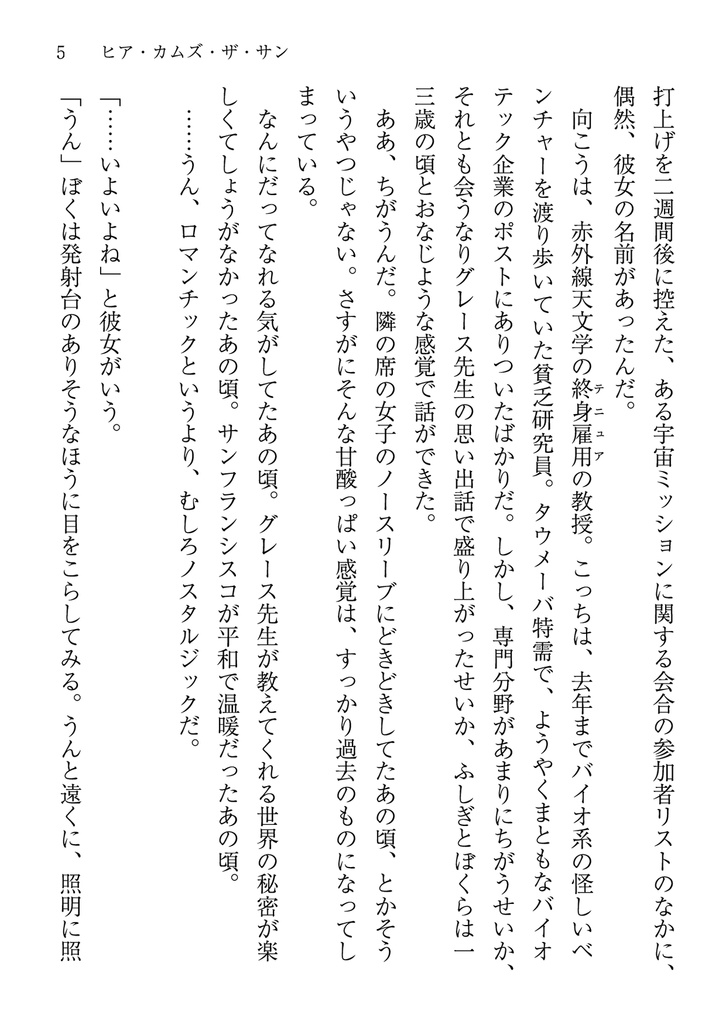 5　ヒア・カムズ・ザ・サン
打上げを二週間後に控えた、ある宇宙ミッションに関する会合の参加者リストのなかに、
偶然、彼女の名前があったんだ。
　向こうは、赤外線天文学の終身雇用の教授。こっちは、去年までバイオ系の怪しいベ
テニュア
ンチャーを渡り歩いていた貧乏研究員。タウメーバ特需で、ようやくまともなバイオ
テック企業のポストにありついたばかりだ。しかし、専門分野があまりにちがうせいか、
それとも会うなりグレース先生の思い出話で盛り上がったせいか、ふしぎとぼくらは一
三歳の頃とおなじような感覚で話ができた。
　ああ、ちがうんだ。隣の席の女子のノースリーブにどきどきしてたあの頃、とかそう
いうやつじゃない。さすがにそんな甘酸っぱい感覚は、すっかり過去のものになってし
まっている。
　なんにだってなれる気がしてたあの頃。グレース先生が教えてくれる世界の秘密が楽
しくてしょうがなかったあの頃。サンフランシスコが平和で温暖だったあの頃。
　……うん、ロマンチックというより、むしろノスタルジックだ。
「……いよいよね」と彼女がいう。
「うん」ぼくは発射台のありそうなほうに目をこらしてみる。うんと遠くに、照明に照